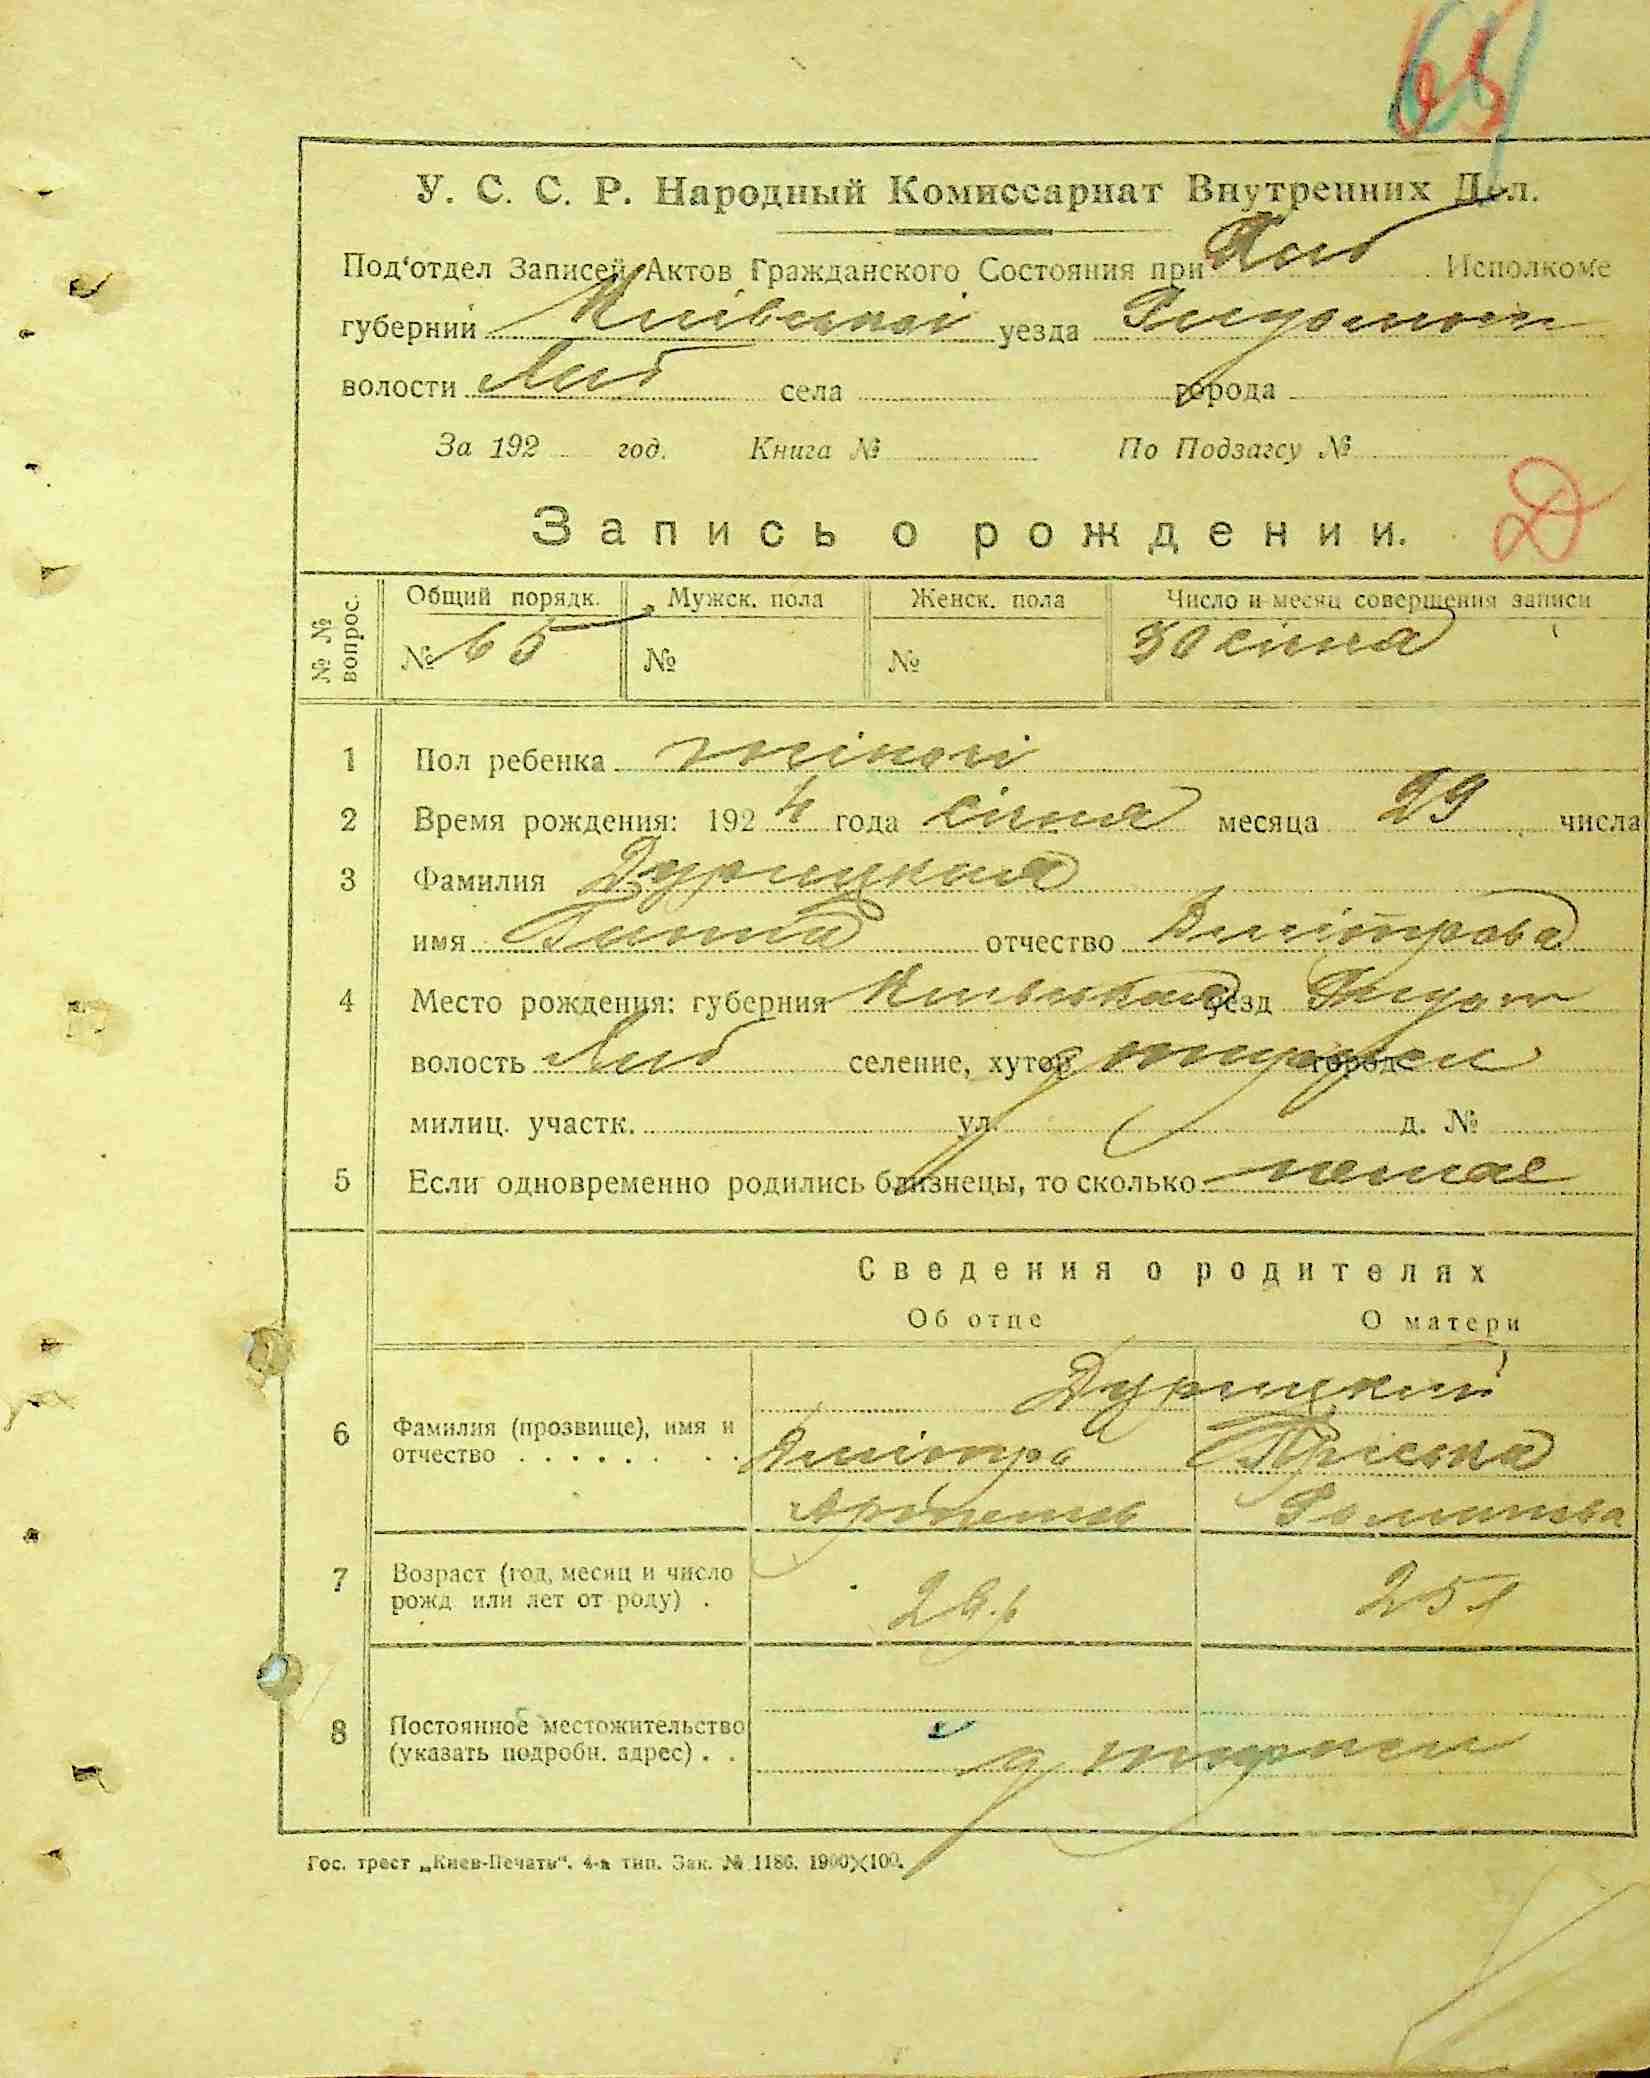 65
У. С. С. Р. Народный Комиссариат Внутренних Дел.
Под'отдел Записей Актов Гражданского Состояния при Исполкоме
губернии Київської уезда
волости села города
За 192 год. Книга № По Подзагсу №
Д
Запись о рождении.
№ № вопрос. Общий порядк. Мужск. пола Женск. пола Число и месяц совершения записи
№ 65 № № 30 січня
1 Пол ребенка жіночі
2 Время рождения: 1924 года січня месяца 29 числа
3 Фамилия Дурицкия
имя Ганна отчество Дмітрова
4 Место рождения: губерния уезд
волость селение, хутор город
милиц. участк. ул. д. №
5 Если одновременно родились близнецы, то сколько немае
Сведения о родителях
Об отце О матери
Дурицкий
6 Фамилия (прозвище), имя и отчество Дмітро Пріська
7 Возраст (год, месяц и число рожд или лет от роду) . 25 л
8 Постоянное местожительство (указать подробн. адрес) . .
Гос. трест „Киев-Печать". 4-я тип. Зак. № 1186. 1900×100.